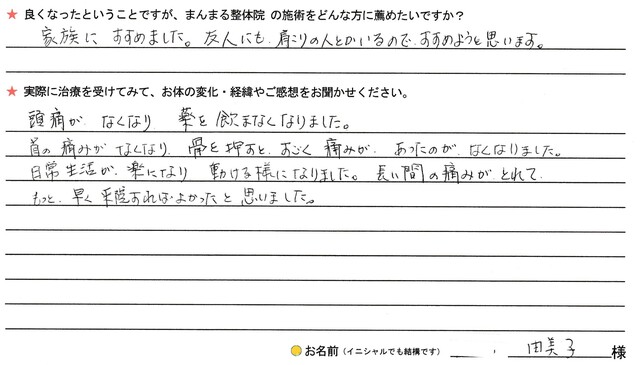 ★ 良くなったということですが、まんまる整体院 の施術をどんな方に薦めたいですか？
家族に すすめました。友人にも、肩こりの人とかいるので、すすめようと思います。
★ 実際に治療を受けてみて、お体の変化・経緯やご感想をお聞かせください。
頭痛が なくなり 薬を飲まなくなりました。
首の痛みがなくなり、骨を押すと、すごく 痛みが、あったのが、なくなりました。
日常生活が、楽になり 動ける様になりました。長い間の痛みが とれて、
もっと、早く来院すればよかったと思いました。
お名前（イニシャルでも結構です） 由美子 様